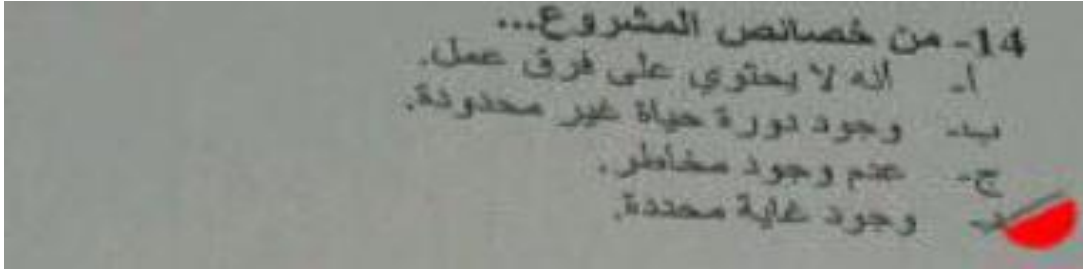 14- من خصائص المشروع...
أ- أنه لا يحتوي على فرق عمل.
ب- وجود دورة حياة غير محدودة.
ج- عدم وجود مخاطر.
د- وجود غاية محددة.